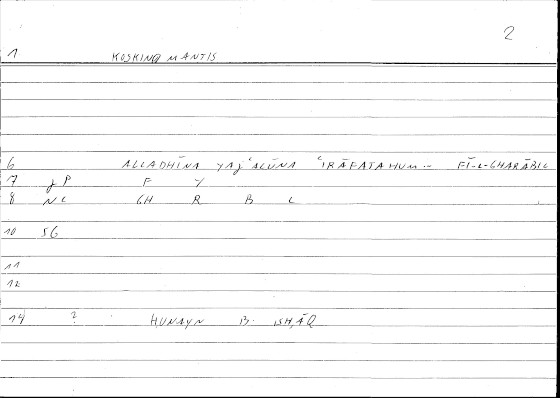 2
1 KOSKINOMANTIS
6 ALLADHĪNA YAJʿALŪNA ʿIRĀFATAHUM -- FĪ-L-GHARĀBIL
7 P F Y
8 NC GH R B L
10 SG
11
12
14 ? HUNAYN B. ISḤĀQ